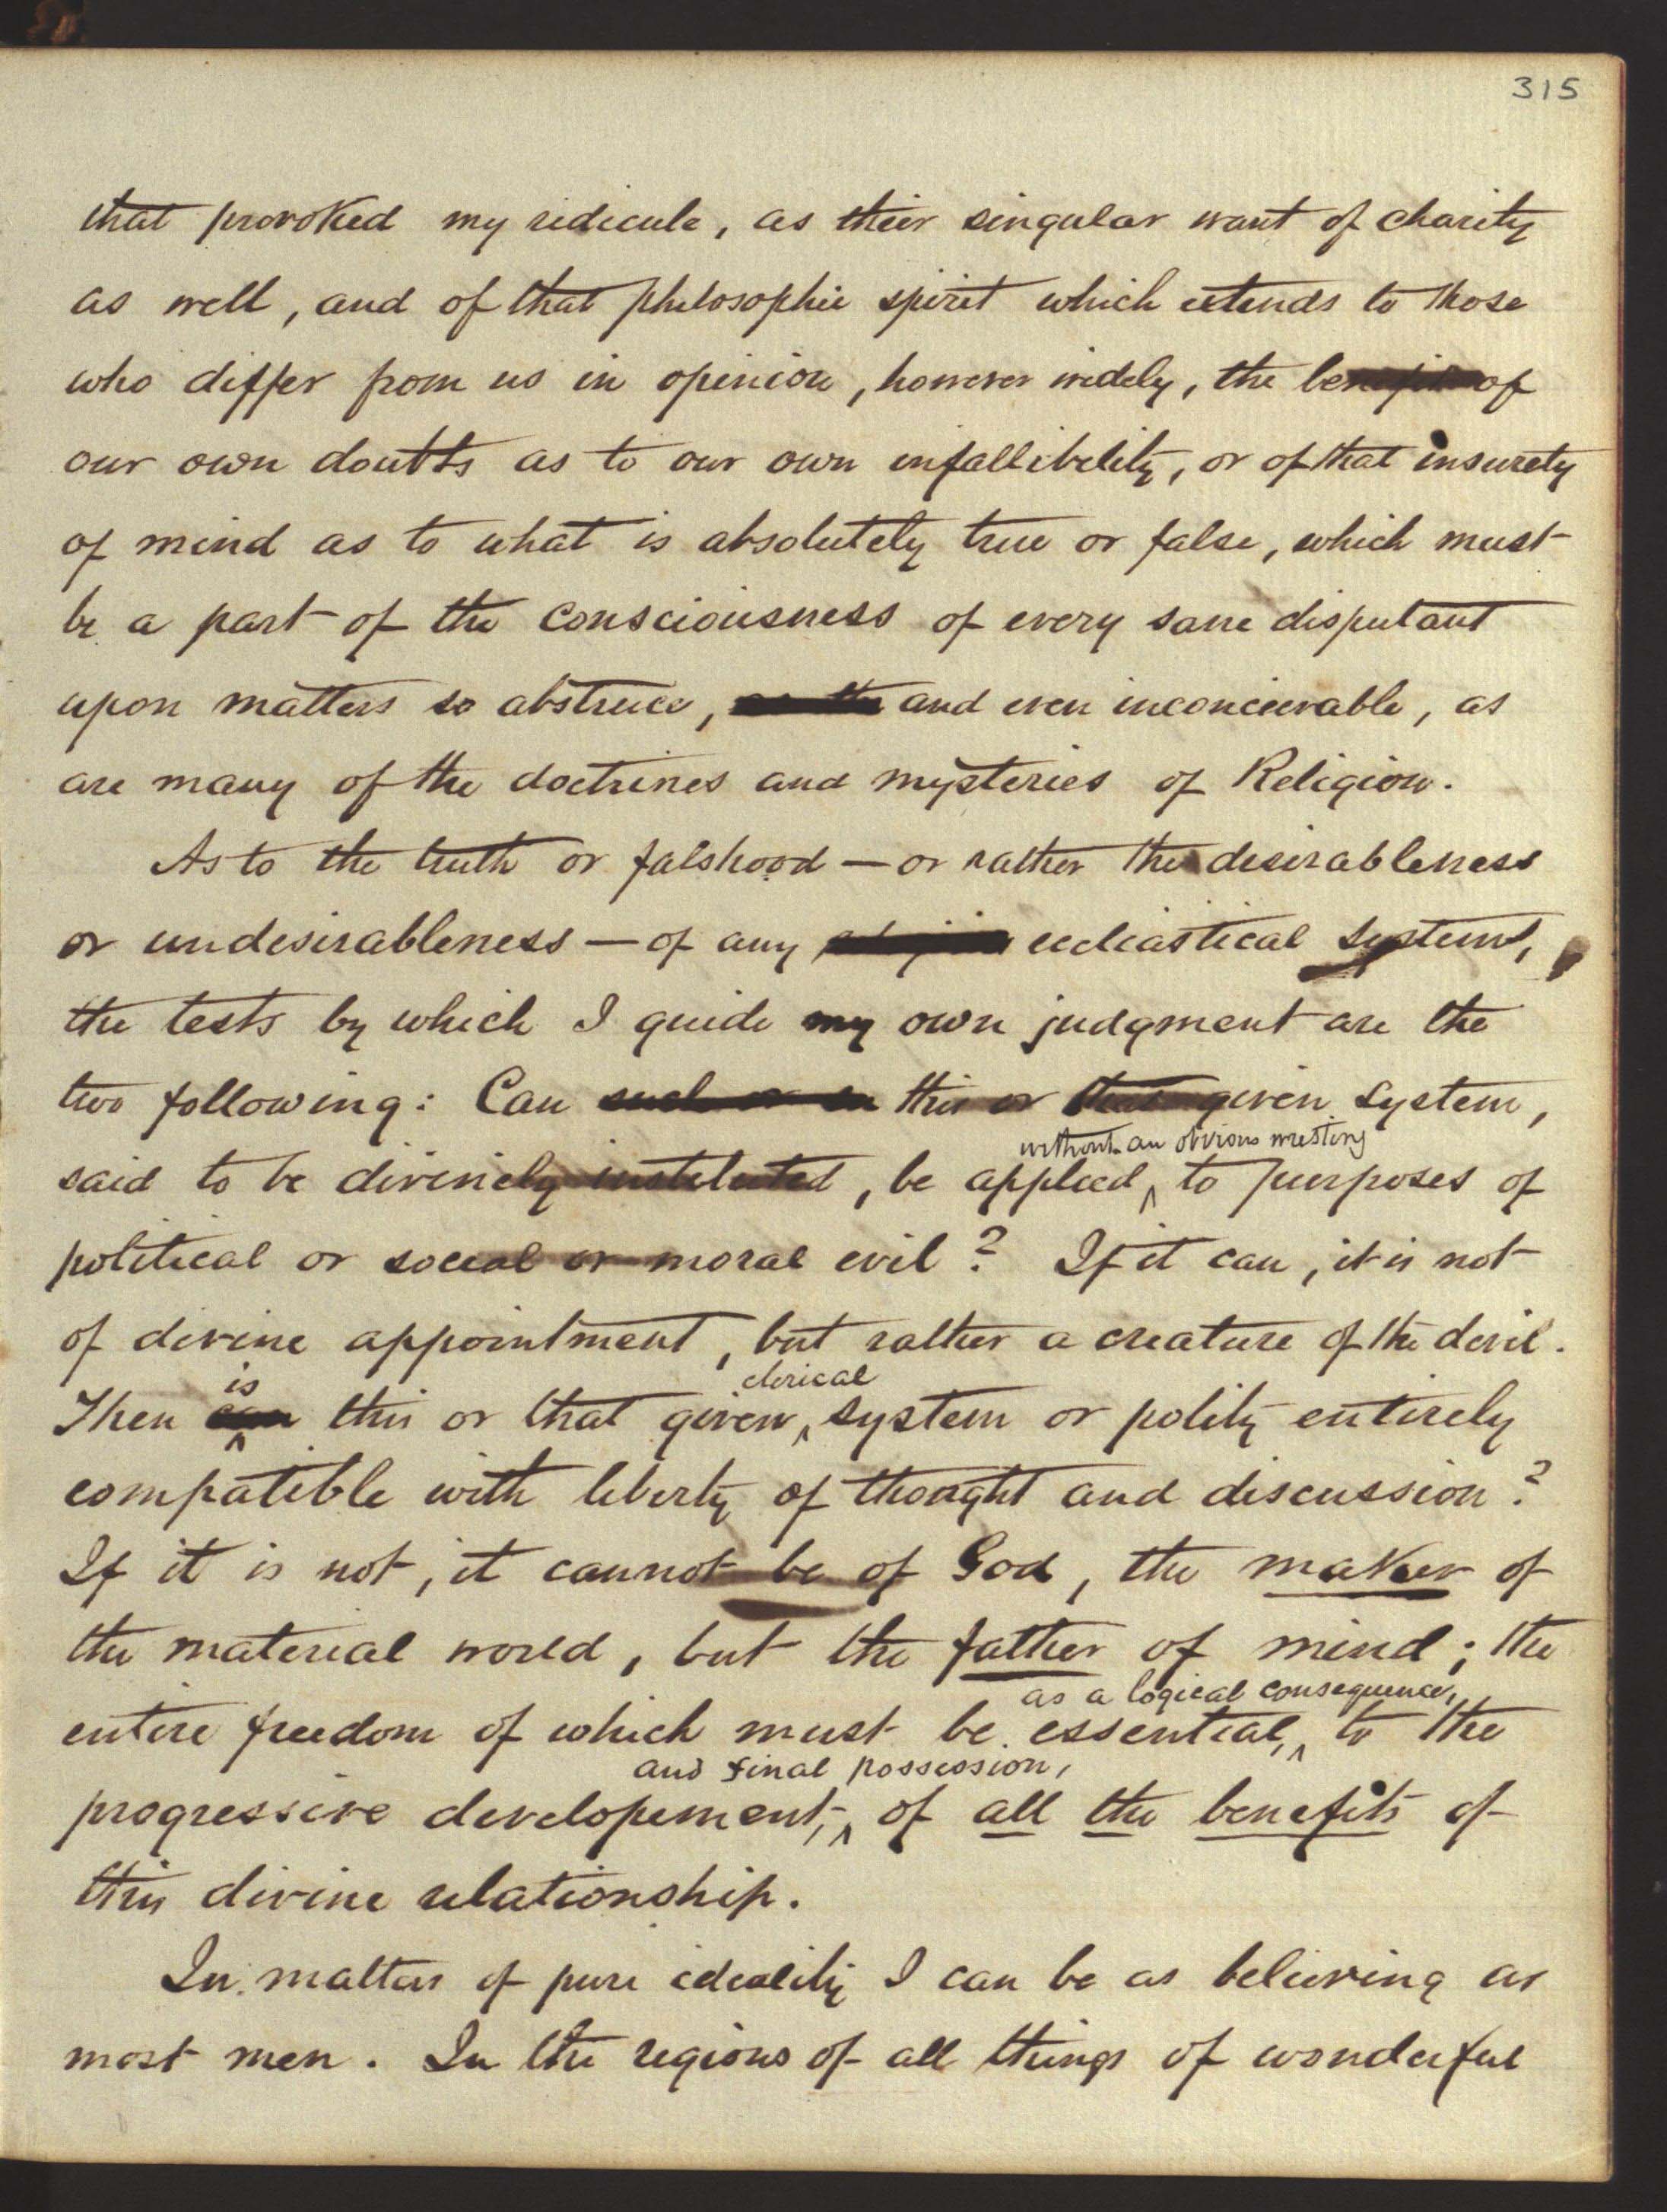 315
that provoked my ridicule, as their singular want of charity
as well, and of that philosophic spirit which extends to those
who differ from us in opinion, however widely, the benefit of
our own doubts as to our own infallibility, or of that insurety
of mind as to what is absolutely true or false, which must
be a part of the consciousness of every sane disputant
upon matters so abstruce, as the and even inconceivable, as
are many of the doctrines and mysteries of Religion.
As to the truth or falshood — or rather the desirableness
or undesirableness — of any eccliastical system,
the tests by which I guide my own judgment are the
two following: Can such or su this or that given system,
without an obvious wresting
said to be divinely instituted, be applied, to purposes of
political or social or moral evil? If it can, it is not
of divine appointment, but rather a creature of the devil.
is clerical
Then can this or that given, system or polity entirely
compatible with liberty of thought and discussion?
If it is not, it cannot be of God, the maker of
the material world, but the father of mind; the
as a logical consequence,
entire freedom of which must be essential, to the
and final possession,
progressive developement, of all the benefits of
this divine relationship.
In matters of pure ideality I can be as believing as
most men. In the regions of all things of wonderful